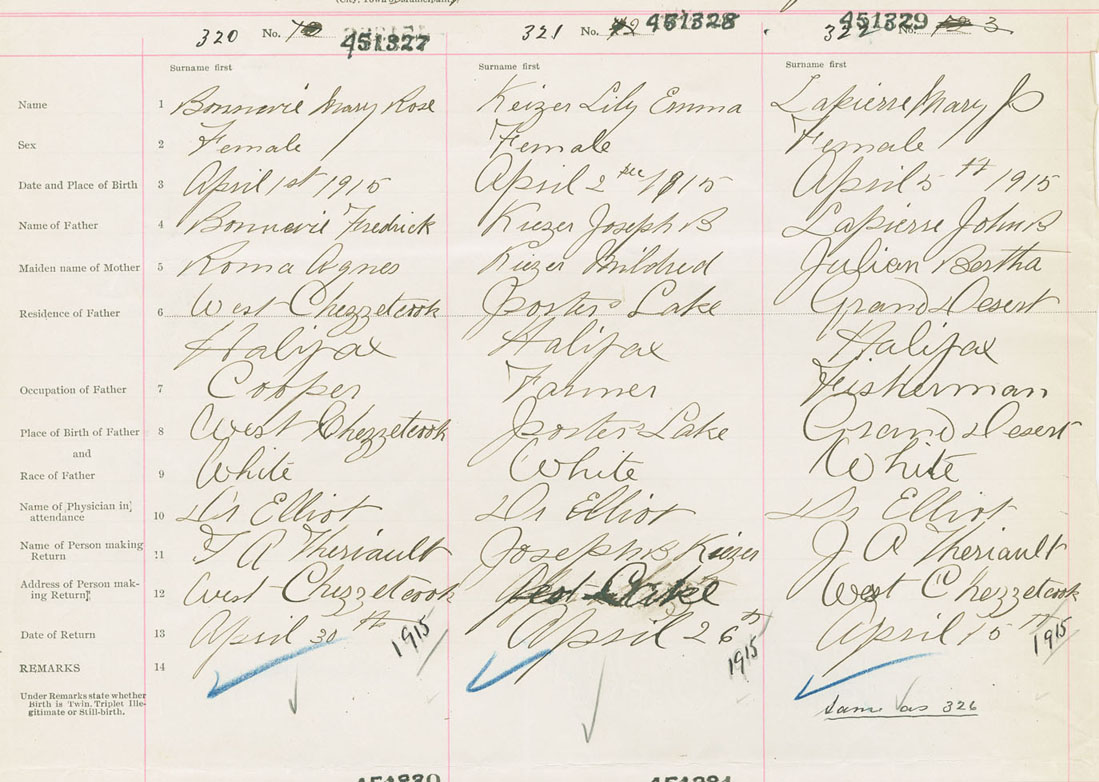 (City, Town or Municipality)
320 No. 451327 321 No. 451328 322 451329 No. 3
Surname first Surname first Surname first
Name 1 Bonnevie Mary Rose Keizer Lily Emma Lapierre Mary J
Sex 2 Female Female Female
Date and Place of Birth 3 April 1st 1915 April 2 1915 April 5th 1915
Name of Father 4 Bonnevie Fredrick Kiezer Joseph B Lapierre John B
Maiden name of Mother 5 Roma Agnes Kiezer Mildred Julian Bertha
Residence of Father 6 West Chezzetcook Porters Lake Grand Desert
Halifax Halifax Halifax
Occupation of Father 7 Cooper Farmer Fisherman
Place of Birth of Father 8 West Chezzetcook Porters Lake Grand Desert
and
Race of Father 9 White White White
Name of Physician in attendance 10 Dr Elliot Dr Elliot Dr Elliot
Name of Person making Return 11 A Theriault Joseph B Kiezer J A Theriault
Address of Person making Return 12 West Chezzetcook Lake West Chezzetcook
Date of Return 13 April 30th 1915 April 26th 1915 April 15th 1915
REMARKS 14
Under Remarks state whether
Birth is Twin, Triplet Ille-
gitimate or Still-birth.
same as 326